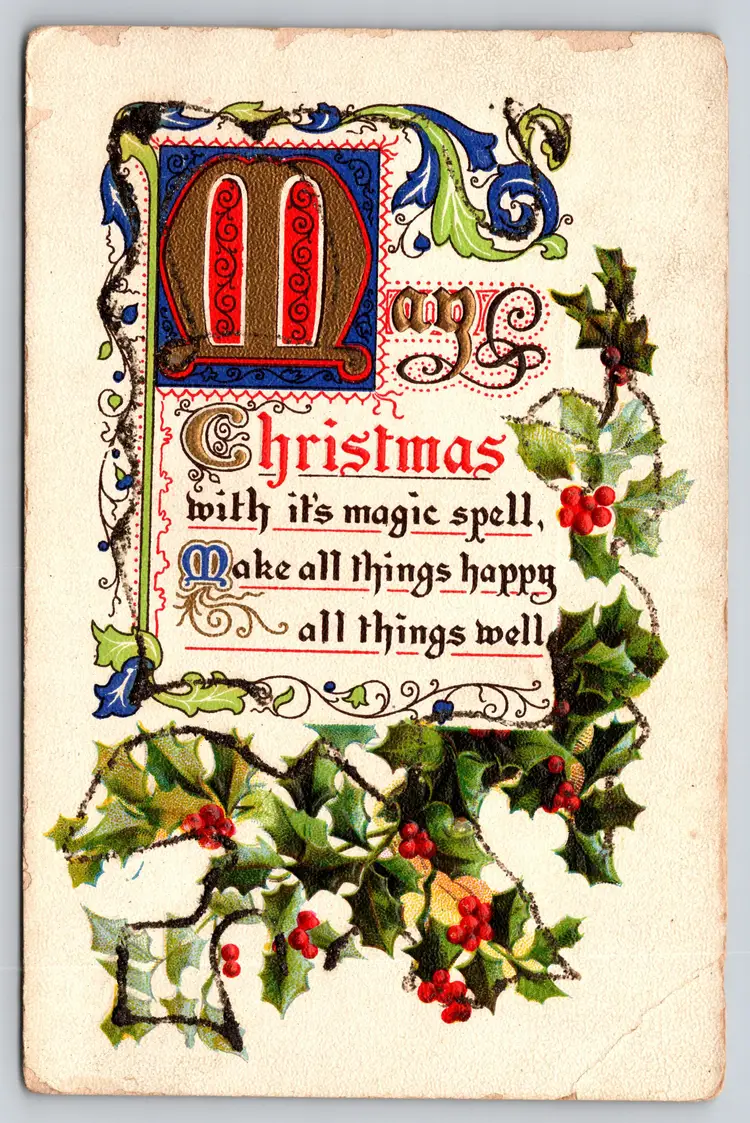 May
Christmas
with it's magic spell,
Make all things happy
all things well